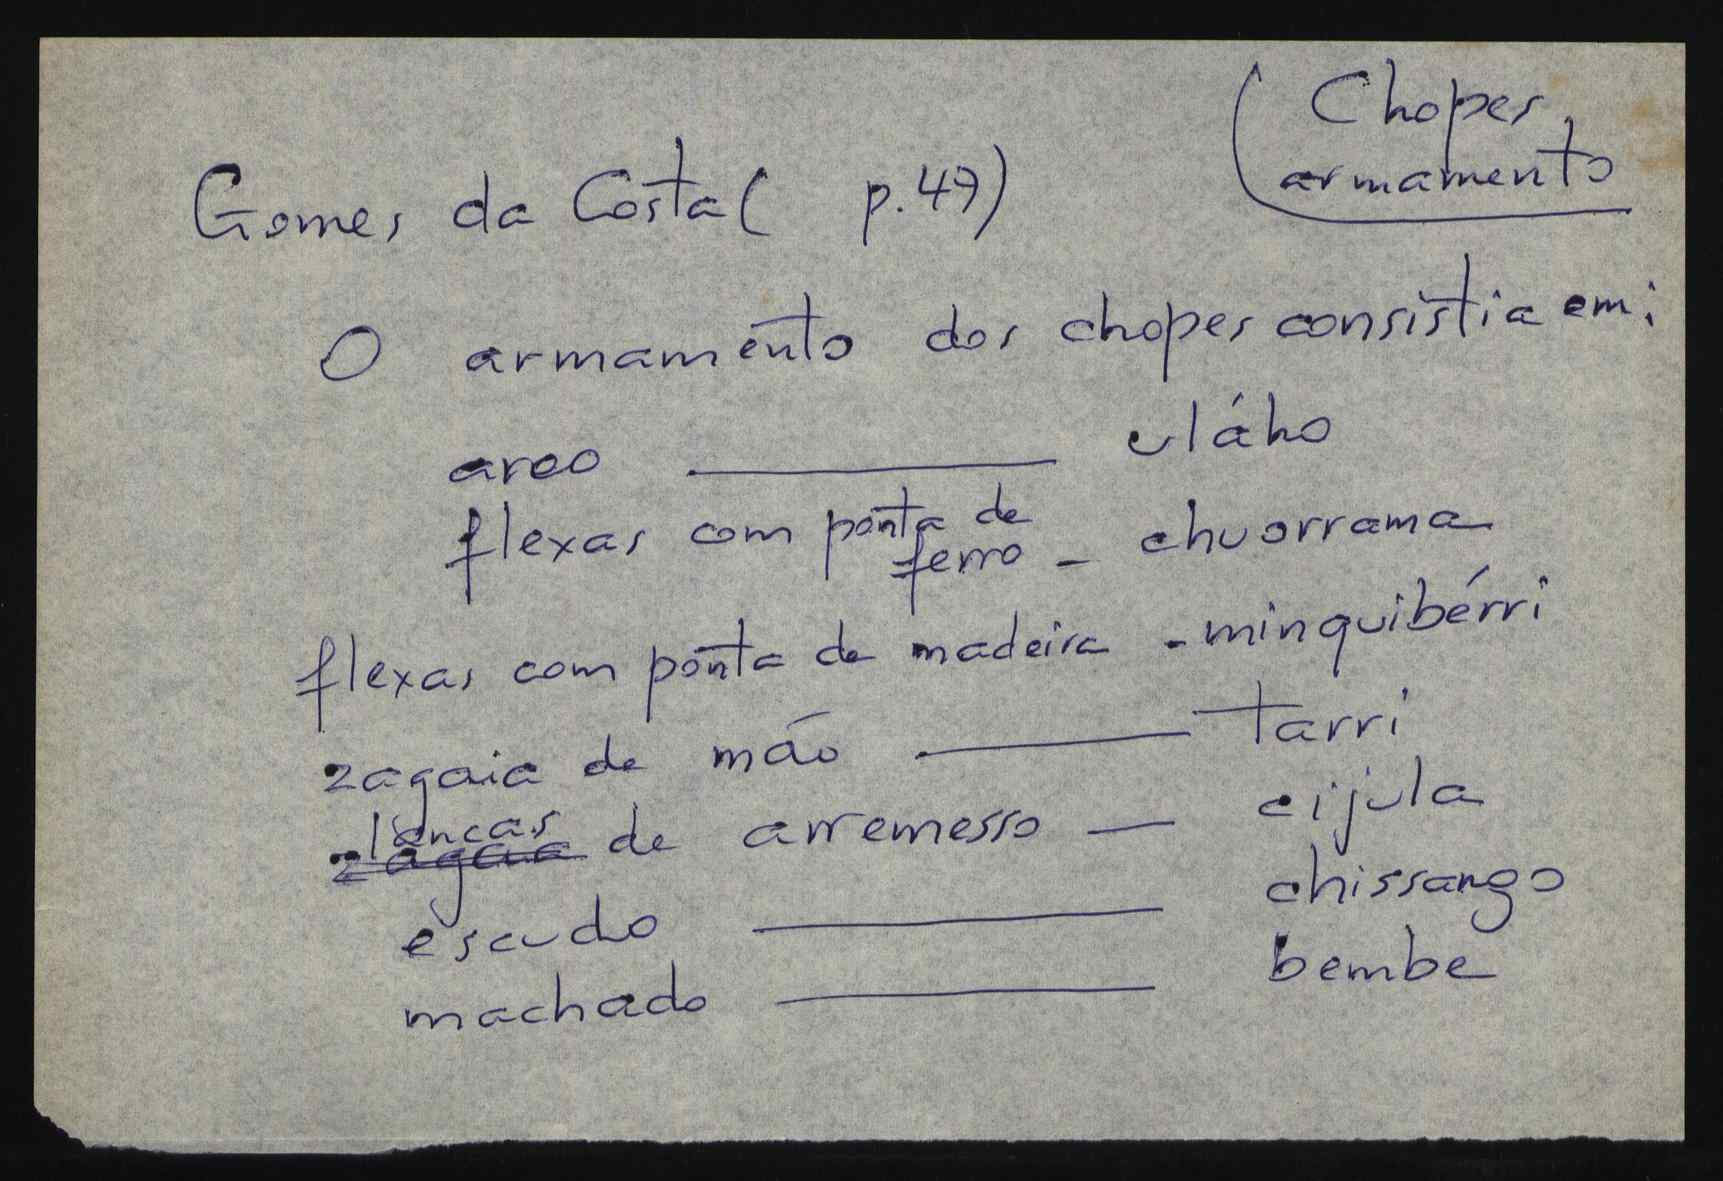 Chopes,
armamento
Gomes da Costa ( p.47)
O armamento dos chopes consistia em:
arco — uláho
flexas com ponta de
ferro - chuorrama
flexas com ponta de madeira - minquibérri
zagaia de mão — tarri
lanças
zagaia de arremesso — cijula
escudo — chissango
machado — bembe